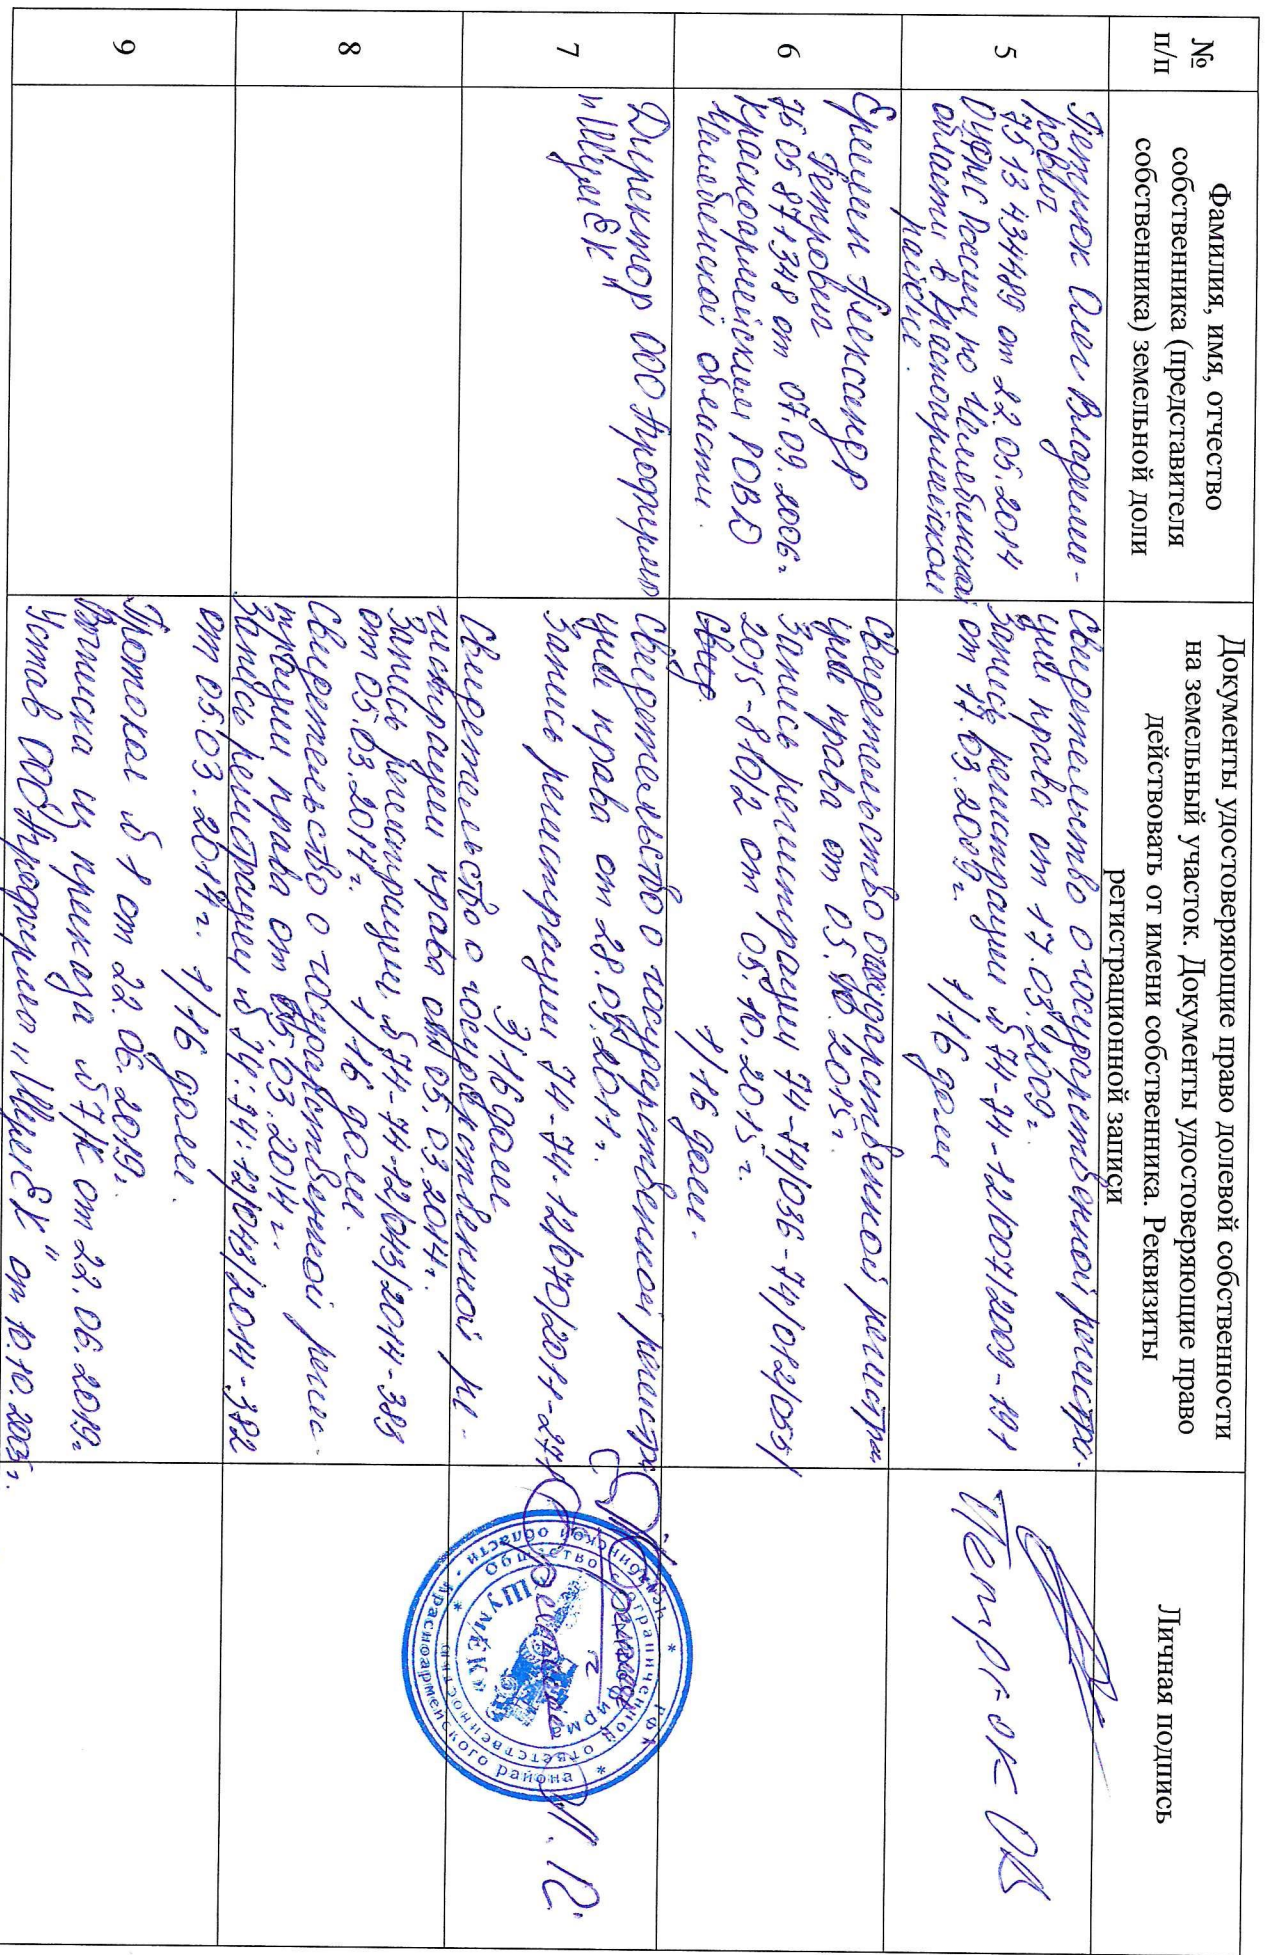 №
п/п
Фамилия, имя, отчество
собственника (представителя
собственника) земельной доли
Документы удостоверяющие право долевой собственности
на земельный участок. Документы удостоверяющие право
действовать от имени собственника. Реквизиты
регистрационной записи
Личная подпись
5
Петрюк Олег Владими-
рович
75 13 434489 от 22.05.2014
ОУФМС России по Челябинской
области в Красноармейском
районе.
Свидетельство о государственной регистра-
ции права от 17.03.2009г.
Запись регистрации № 74-74-12/007/2009-191
от 17.03.2009г.
1/16 доли
Петрюк ОВ
6
Еремин Александр
Петрович
75 05 871348 от 07.09.2006г
Красноармейским РОВД
Челябинской области.
Свидетельство о государственной регистра
ции права от 05.10.2015г.
Запись регистрации 74-74/036-74/012/055/
2015-810/2 от 05.10.2015г.
1/16 доли.
7
Директор ООО Агрофирма
"ШумЕК"
Свидетельство о государственной регистра
ции права от 28.09.2011г.
Запись регистрации 74-74-12/070/2011-271
3/16 доли
Свидетельство о государственной ре-
8
гистрации права от 05.03.2014г.
Запись регистрации № 74-74-12/013/2014-389
от 05.03.2014г.
1/16 доли.
Свидетельство о государственной регис-
трации права от 05.03.2014г.
Запись регистрации № 74:74:12/013/2014-382
9
от 05.03.2014г. 1/16 доли.
Протокол № 1 от 22.06.2019г.
Выписка из приказа № 7/К от 22.06.2019г
Устав ООО Агрофирма "ШумЕК" от 10.10.2005г.
Челябинской области * Красноармейского района * РФ *
Общество с ограниченной ответственностью *
фирма
«ШУМЕК»